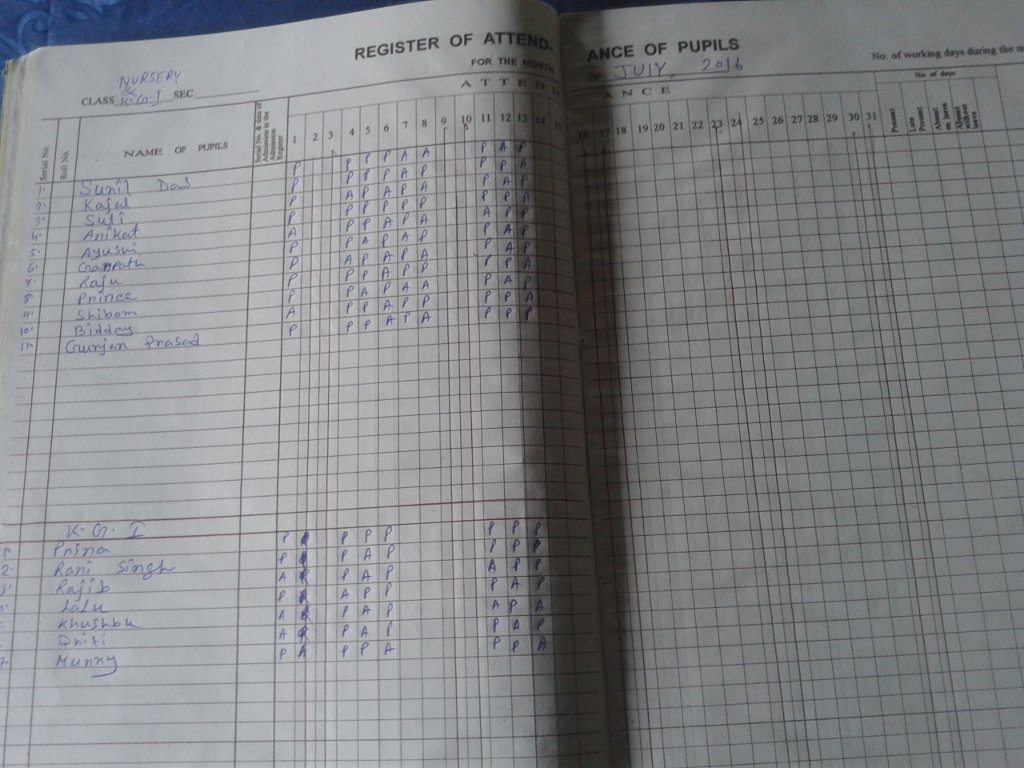 REGISTER OF ATTEND- ANCE OF PUPILS
FOR THE MONTH OF JULY, 2016 No. of working days during the m
CLASS NURSERY K.G.I SEC.
ATTEND ANCE No. of days
Serial No. Roll No. NAME OF PUPILS Serial No. & date of Admission in the Admission Register 1 2 3 4 5 6 7 8 9 10 11 12 13 14 15 16 17 18 19 20 21 22 23 24 25 26 27 28 29 30 31 Present Late Present Absent on leave Absent without leave
1. Sunil Das P P P P A A P A P
2. Kajal P P P P A P P P A
3. Suti P A P A P A P A P
4. Anikat P P P P P P P P A
5. Ayushi A P P A P A A P P
6. Ganpath P P A P A P P A P
7. Raju P A P A P A P A P
8 Prince P P P A P P P P A
9. Shibom P P A P A A P A P
10. Bidday A P P A P P P P A
11. Gunjan Prasad P P P A P A P P P
K.G.I
1. Prina P P P P P P P
2. Rani Singh P P A P P P P
3. Rajib A P A P A P P
4. Lalu P A P P P A P
Khushbu A P A P A P A
Driti A P A P P A P
7. Munny P A P P A P P A